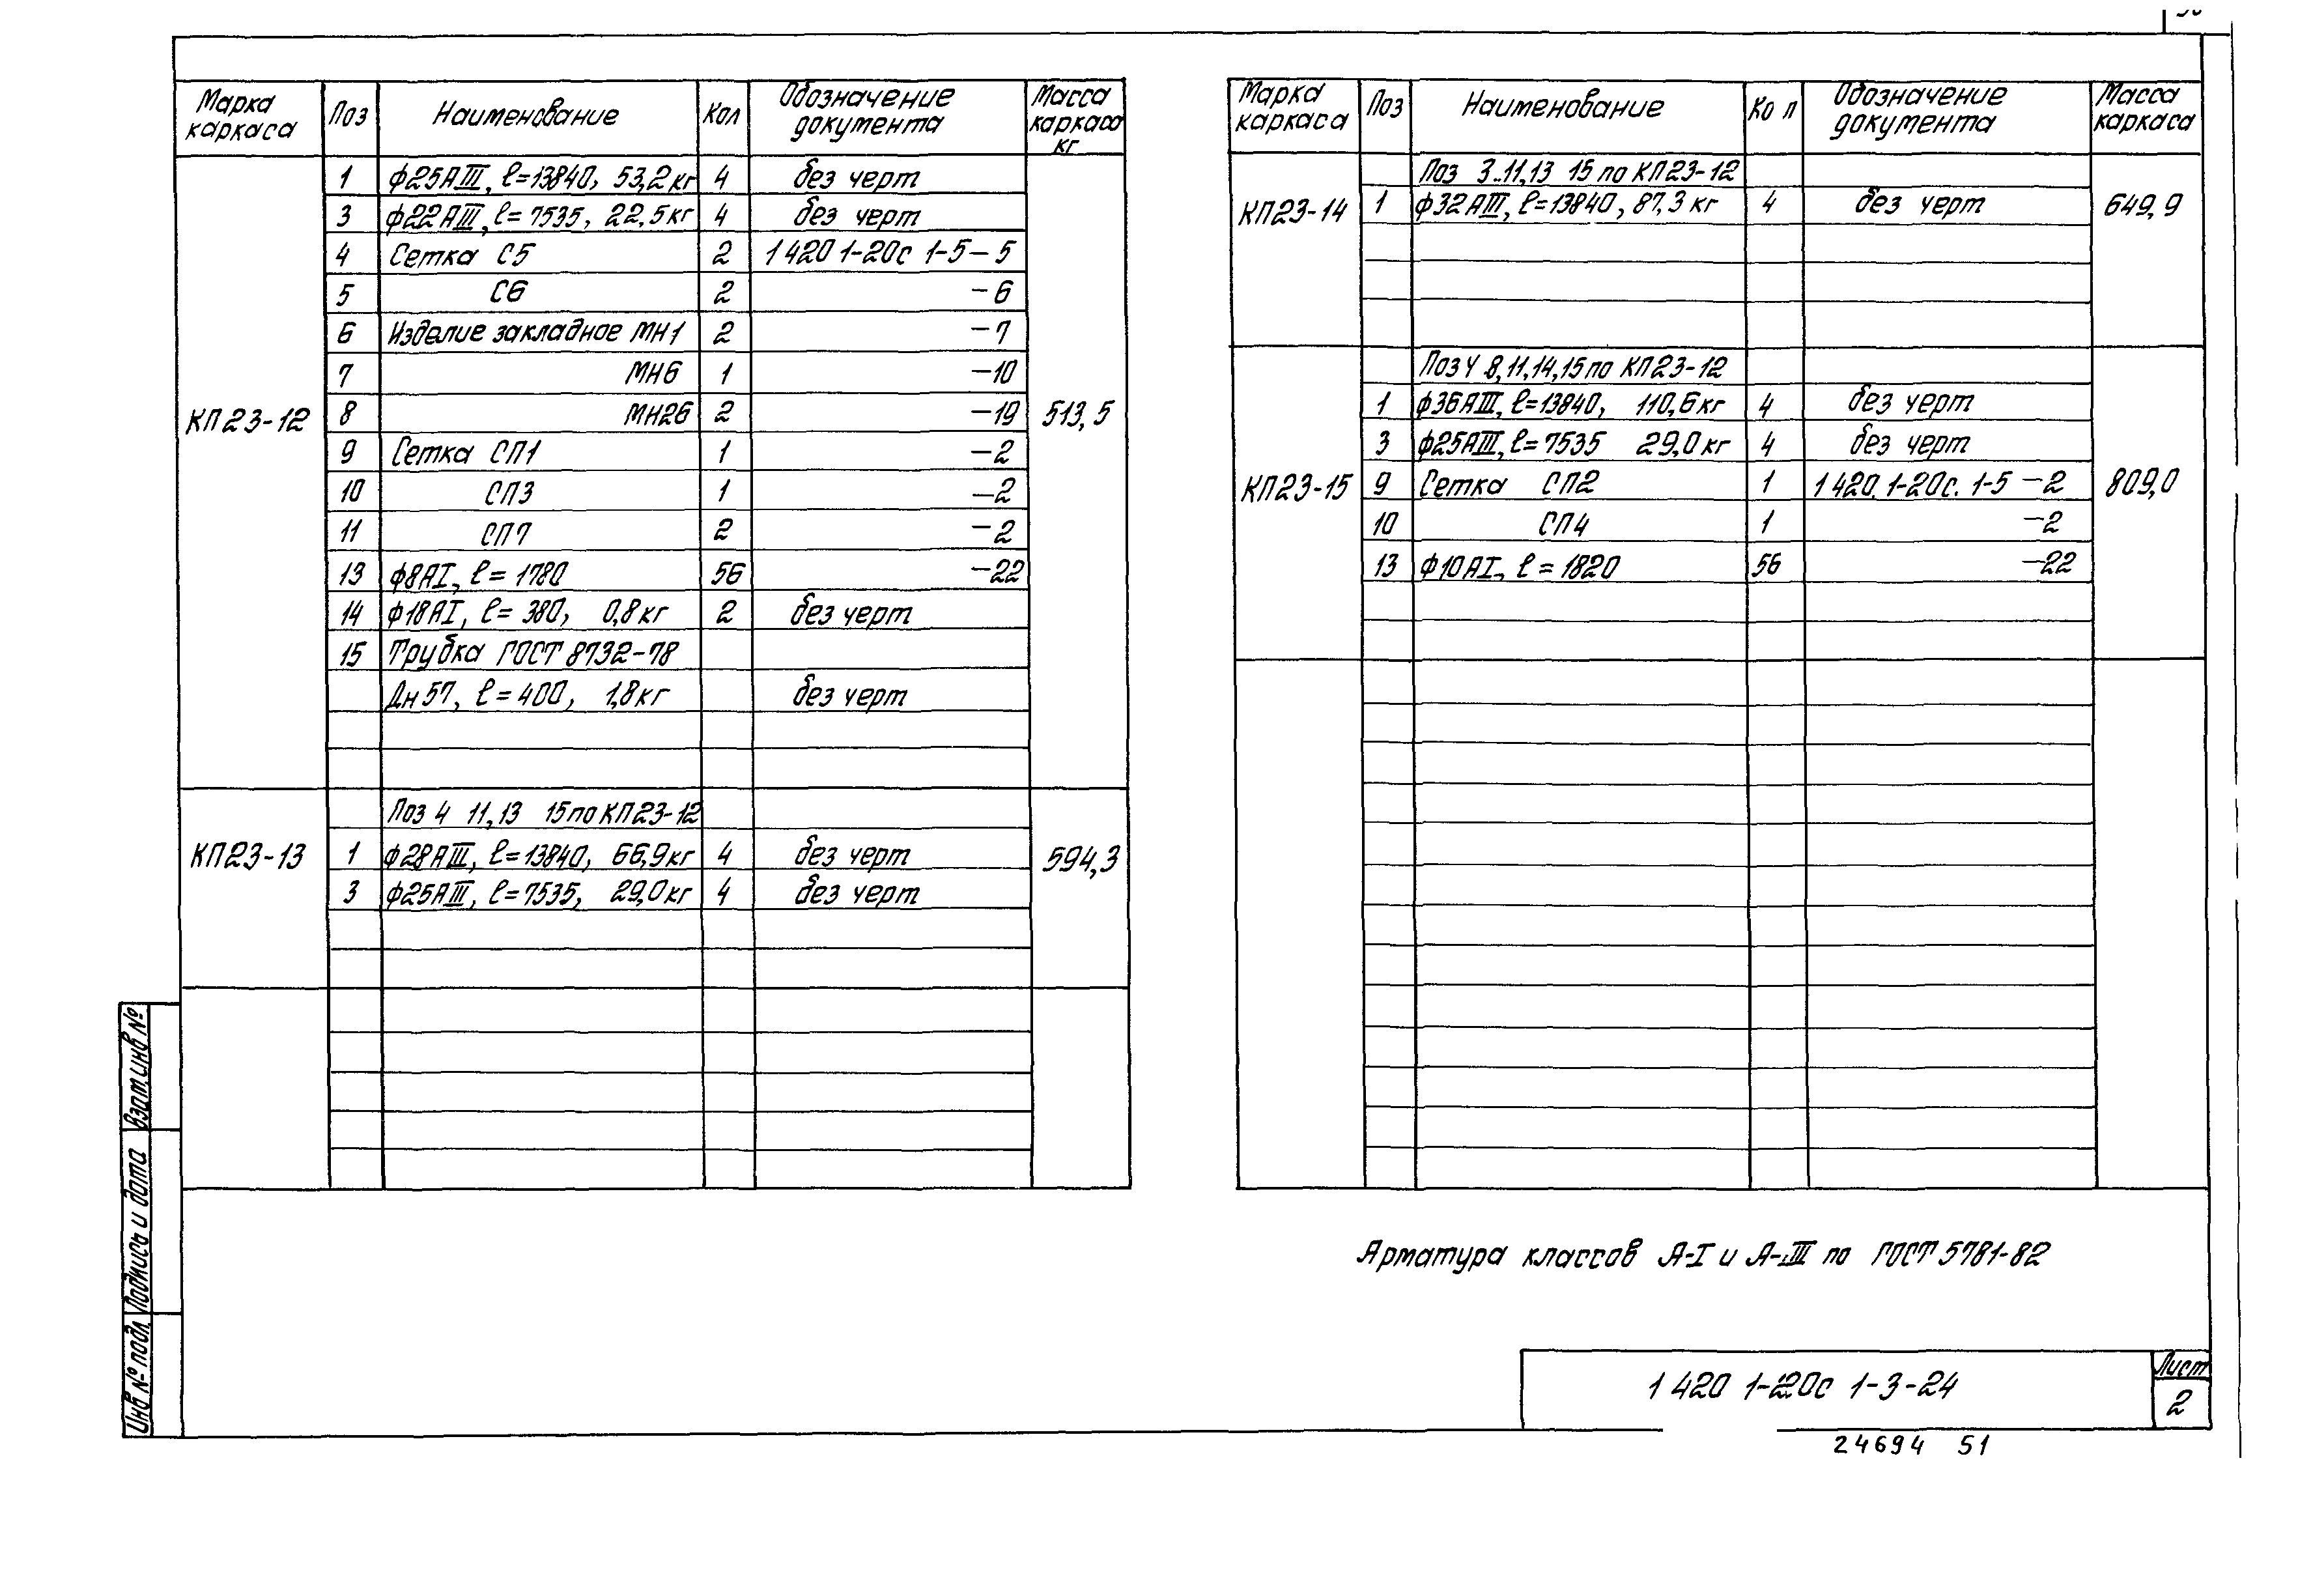 Марка каркаса Поз Наименование Кол Обозначение документа Масса каркаса кг
1 ф25АIII, ℓ=13840, 53,2кг 4 без черт
3 ф22АIII, ℓ=7535, 22.5кг 4 без черт
4 Сетка С5 2 1 420 1-20с 1-5-5
5 С6 2 -6
6 Изделие закладное МН1 2 -7
7 МН6 1 -10
КП23-12 8 МН26 2 -19 513,5
9 Сетка СП1 1 -2
10 СП3 1 -2
11 СП7 2 -2
13 ф8АI, ℓ=1780 56 -22
14 ф18АI, ℓ=380, 0,8кг 2 без черт
15 Трубка ГОСТ 8732-78
Дн57, ℓ=400, 1,8кг без черт
Поз 4 11,13 15 по КП23-12
КП23-13 1 ф28АIII, ℓ=13840, 66,9кг 4 без черт 594,3
3 ф25АIII, ℓ=7535, 29,0кг 4 без черт
Марка каркаса Поз Наименование Кол Обозначение документа Масса каркаса
Поз 3..11,13 15 по КП23-12
КП23-14 1 ф32АIII, ℓ=13840, 87,3кг 4 без черт 649,9
Поз 4 8,11,14,15 по КП23-12
1 ф36АIII, ℓ=13840, 110,6кг 4 без черт
3 ф25АIII, ℓ=7535 29,0кг 4 без черт
КП23-15 9 Сетка СП2 1 1 420. 1-20с. 1-5 -2 809,0
10 СП4 1 -2
13 Ф10АI, ℓ=1820 56 -22
Арматура классов А-I и А-III по ГОСТ 5781-82
Взам инв №
Подпись и дата
Инв № подл
1 420 1-20с 1-3-24
Лист
2
24694 51